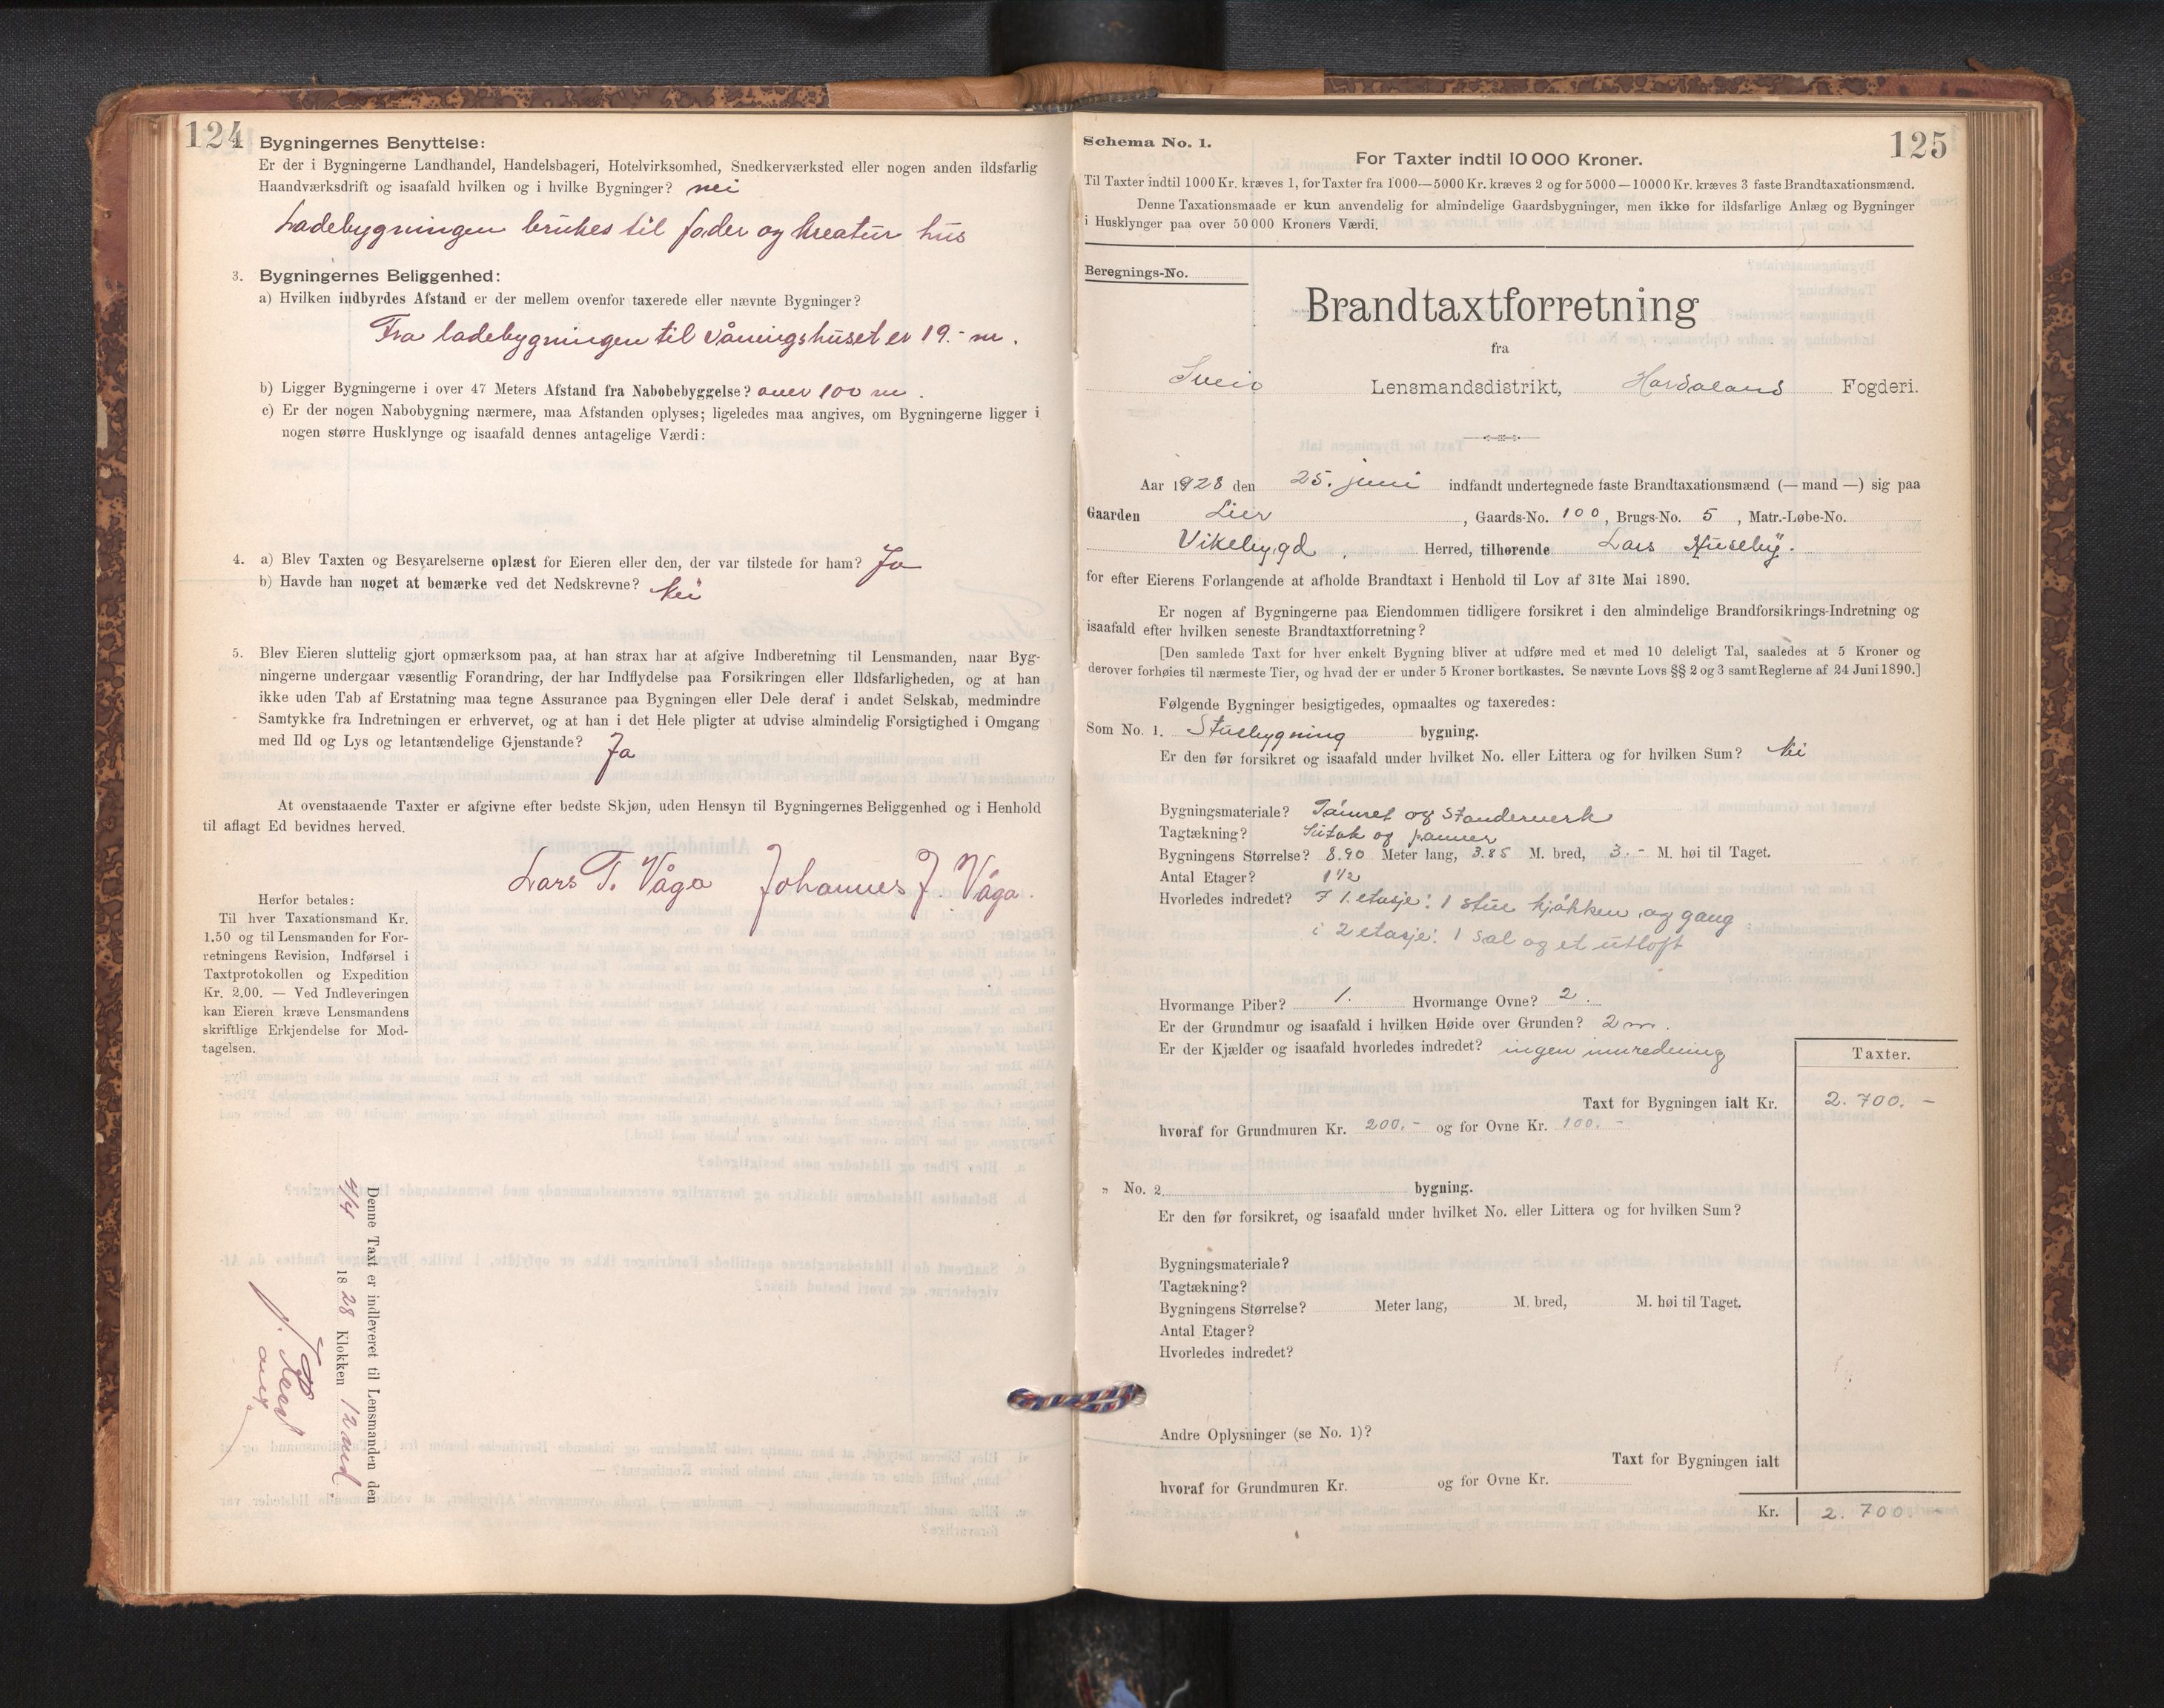 124
Bygningernes Benyttelse:
Er der i Bygningerne Landhandel, Handelsbageri, Hotelvirksomhed, Snedkerværksted eller nogen anden ildsfarlig
Haandværksdrift og isaafald hvilken og i hvilke Bygninger? nei
Ladebygningen brukes til foder og kreatur hus
3. Bygningernes Beliggenhed:
a) Hvilken indbyrdes Afstand er der mellem ovenfor taxerede eller nævnte Bygninger?
Fra ladebygningen til våningshuset er 19.- m.
b) Ligger Bygningerne i over 47 Meters Afstand fra Nabobebyggelse? over 100 m.
c) Er der nogen Nabobygning nærmere, maa Afstanden oplyses; ligeledes maa angives, om Bygningerne ligger i
nogen større Husklynge og isaafald dennes antagelige Værdi:
4. a) Blev Taxten og Besvarelserne oplæst for Eieren eller den, der var tilstede for ham? Ja
b) Havde han noget at bemærke ved det Nedskrevne? Nei
5. Blev Eieren sluttelig gjort opmærksom paa, at han strax har at afgive Indberetning til Lensmanden, naar Byg-
ningerne undergaar væsentlig Forandring, der har Indflydelse paa Forsikringen eller Ildsfarligheden, og at han
ikke uden Tab af Erstatning maa tegne Assurance paa Bygningen eller Dele deraf i andet Selskab, medmindre
Samtykke fra Indretningen er erhvervet, og at han i det Hele pligter at udvise almindelig Forsigtighed i Omgang
med Ild og Lys og letantændelige Gjenstande? Ja
At ovenstaaende Taxter er afgivne efter bedste Skjøn, uden Hensyn til Bygningernes Beliggenhed og i Henhold
til aflagt Ed bevidnes herved.
Lars T. Våga Johannes J. Våga.
Herfor betales:
Til hver Taxationsmand Kr.
1.50 og til Lensmanden for For-
retningens Revision, Indførsel i
Taxtprotokollen og Expedition
Kr. 2.00. — Ved Indleveringen
kan Eieren kræve Lensmandens
skriftlige Erkjendelse for Mod-
tagelsen.
Denne Taxt er indleveret til Lensmanden den
4/4 1828 Klokken 12 md.
125
Schema No. 1.
For Taxter indtil 10 000 Kroner.
Til Taxter indtil 1000 Kr. kræves 1, for Taxter fra 1000—5000 Kr. kræves 2 og for 5000—10000 Kr. kræves 3 faste Brandtaxationsmænd.
Denne Taxationsmaade er kun anvendelig for almindelige Gaardsbygninger, men ikke for ildsfarlige Anlæg og Bygninger
i Husklynger paa over 50 000 Kroners Værdi.
Beregnings-No.
Brandtaxtforretning
fra
Sveio Lensmandsdistrikt, Hordaland Fogderi.
Aar 1928 den 25. juni indfandt undertegnede faste Brandtaxationsmænd (— mand —) sig paa
Gaarden Lier, Gaards-No. 100, Brugs-No. 5, Matr.-Løbe-No.
Vikebygd Herred, tilhørende Lars Huseby.
for efter Eierens Forlangende at afholde Brandtaxt i Henhold til Lov af 31te Mai 1890.
Er nogen af Bygningerne paa Eiendommen tidligere forsikret i den almindelige Brandforsikrings-Indretning og
isaafald efter hvilken seneste Brandtaxtforretning?
[Den samlede Taxt for hver enkelt Bygning bliver at udføre med et med 10 deleligt Tal, saaledes at 5 Kroner og
derover forhøies til nærmeste Tier, og hvad der er under 5 Kroner bortkastes. Se nævnte Lovs §§ 2 og 3 samt Reglerne af 24 Juni 1890.]
Følgende Bygninger besigtigedes, opmaaltes og taxeredes:
Som No. 1. Stuebygning bygning.
Er den før forsikret og isaafald under hvilket No. eller Littera og for hvilken Sum? Nei
Bygningsmateriale? Tømret og standerverk
Tagtækning? Sutak og panner
Bygningens Størrelse? 8.90 Meter lang, 3.85 M. bred, 3.- M. høi til Taget.
Antal Etager? 1 1/2
Hvorledes indredet? I 1. etasje: 1 stue kjøkken og gang
i 2 etasje: 1 sal og et utloft
Hvormange Piber? 1. Hvormange Ovne? 2.
Er der Grundmur og isaafald i hvilken Høide over Grunden? 2 m.
Er der Kjælder og isaafald hvorledes indredet? ingen innredning
Taxter.
Taxt for Bygningen ialt Kr. 2.700.-
hvoraf for Grundmuren Kr. 200.- og for Ovne Kr. 100.-
" No. 2. bygning.
Er den før forsikret, og isaafald under hvilket No. eller Littera og for hvilken Sum?
Bygningsmateriale?
Tagtækning?
Bygningens Størrelse? Meter lang, M. bred, M. høi til Taget.
Antal Etager?
Hvorledes indredet?
Andre Oplysninger (se No. 1)?
Taxt for Bygningen ialt
hvoraf for Grundmuren Kr. og for Ovne Kr.
Kr. 2.700.-